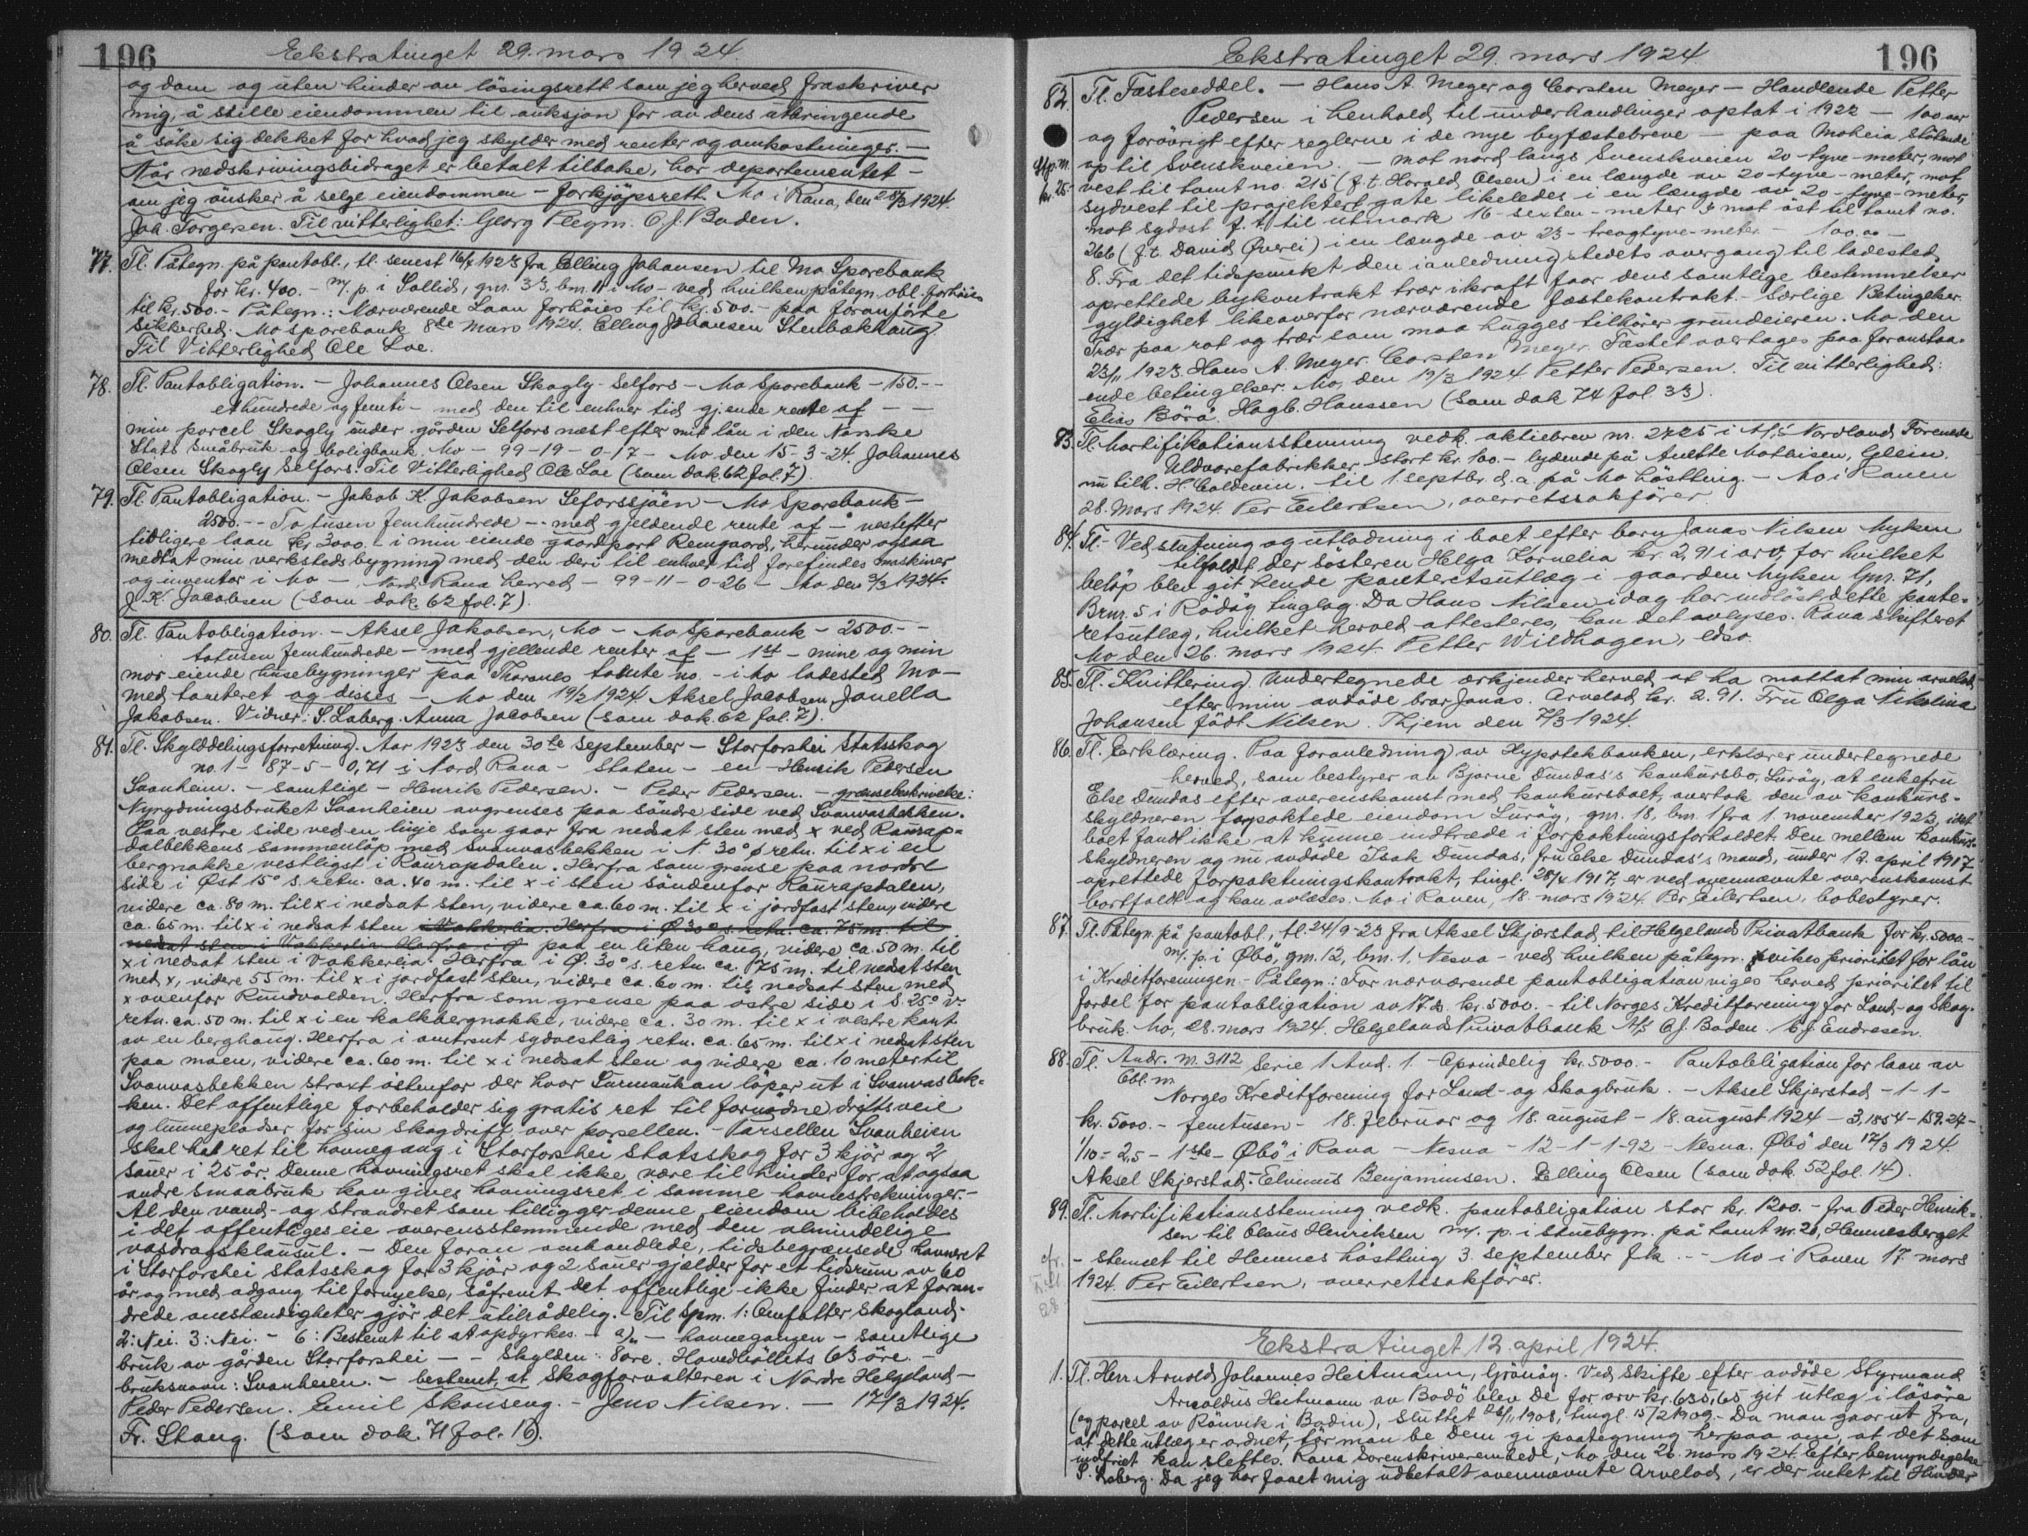 196 Ekstratinget 29. mars 1924.
og dom og uten hinder av lösingsrett som jeg herved fraskriver
mig, å stille eiendommen til auksjon for av dens utbringende
å söke sig dekket for hvad jeg skylder med renter og omkostninger. —
Når nedskrivningsbidraget er betalt tilbake, har departementet —
om jeg önsker å selge eiendommen — forkjöpsrett. Mo i Rana, den 28/3 1924.
Joh. Torgersen. Til vitterlighet: Georg Plegm. O.J. Boden.
77. Tl. Påtegn. på pantobl., tl. senest 16/4 1923 fra Elling Johansen til Mo Sparebank
for kr. 400.- m/. p. i Sollid, gnr. 33, bnr. 11 i Mo - ved hvilken påtegn. obl. forhöies
til kr. 500.- Påtegn.: Nærværende Laan forhöies til kr. 500.- paa foranförte
Sikkerhed. Mo Sparebank 8de Mars 1924. Elling Johansen Stenbækhaug
Til Vitterlighed Ole Loe.
78. Tl. Pantobligation. - Johannes Olsen Skogly - Selfors - Mo Sparebank - 150.--
ethundrede og femti - med den til enhver tid gjende rente af - -
min parcel Skogly under gården Selfors næst efter mit lån i den Norske
Stats Småbruk og boligbank. Mo - 99-19-0-17 - Mo den 15-3-24. Johannes
Olsen Skogly Selfors. Til Vitterlighed Ole Loe (som dok. 62 fol. 7).
79. Tl. Pantobligation. - Jakob K. Jakobsen Seforssjöen - Mo Sparebank -
2500.-- Totusen femhundrede -- med gjeldende rente af - nestefter
tidligere laan kr 3000.- i min eiende gaardpart Remgaard, herunder ogsaa
medtat min verkstedsbygning med den deri til enhver tid forefindes maskiner
og inventar i Mo - Nord Rana herred - 99-11-0-26 - Mo den 3/3 1924.
J. K. Jacobsen (som dok. 62 fol. 7).
80. Tl. Pantobligation. - Aksel Jakobsen, Mo - Mo Sparebank - 2500.--
totusen femhundrede - med gjellende renter af - 1ste - mine og min
mor eiende husebygninger paa Thoranes tomte no. - i Mo ladested Mo -
med tomteret og disses - Mo den 19/2 1924. Aksel Jacobsen Janella
Jakobsen. Vidner: S. Laberg. Anna Jacobsen (som dok. 62 fol. 7).
81. Tl. Skylddelingsforretning. Aar 1923 den 30te September - Storforshei Statsskog
no. 1 - 87-5-0,71 i Nord Rana - Staten - en - Henrik Pedersen
Svanheim. - samtlige - Henrik Pedersen. - Peder Pedersen. - grænsebeskrivelse:
Nyrydningsbruket Svanheien avgrenses paa söndre side ved Svanvasbekken.
Paa vestre side ved en linje som gaar fra nedsat sten med x ved Raurap-
dalbekkens sammenlöp med Svanvasbekken i N 30° ø retn. til x i en
bergnakke vestligst i Raurapdalen. Herfra som grense paa nordre
side i Øst 15° s. retn. ca. 40 m. til x i sten söndenfor Raurapdalen,
videre ca. 80 m. til x i nedsat sten, videre ca. 60 m. til x i jordfast sten, videre
ca. 65 m. til x i nedsat sten Vakkerlia. Herfra i Ø 30° s. retn. ca. 75 m. til
nedsat sten i Vakkerlia. Herfra i Ø paa en liten haug, videre ca. 50 m. til
x i nedsat sten i Vakkerlia. Herfra i Ø. 30° s. retn. ca. 75 m. til nedsat sten
med x, videre 55 m. til x i jordfast sten, videre ca. 60 m. til nedsat sten med
x ovenfor Rundvolden. Herfra som grense paa östre side i S. 25° v.
retn. ca. 50 m. til x i en kalkbergnakke, videre ca. 30 m. til x i vestre kant
av en berghaug. Herfra i omtrent sydvestlig retn. ca. 65 m. til x i nedsat sten
paa moen, videre ca. 60 m. til x i nedsat sten og videre ca. 10 meter til
Svanvasbekken straxt östenfor der hvor Surmauhan löper ut i Svanvasbek-
ken. Det offentlige forbeholder sig gratis ret til fornödne driftsveie
og lunnepladser for sin skogdrift over parsellen. - Parsellen Svanheien
skal hat ret til havnegang i Storforshei statsskog for 3 kjör og 2
sauer i 25 år. Denne havningsret skal ikke være til hinder for at ogsaa
andre småabruk kan gives havningsret i samme havnestrekninger.-
Al den vand- og strandret som tilligger denne eiendom bibeholdes
i det offentliges eie overensstemmende med den almindelige
vasdragsklausul. - Den foran omhandlede, tidsbegrænsede havneret
i Storforshei statsskog for 3 kjör og 2 sauer gjælder for et tidsrum av 60
år og med adgang til fornyelse, såfremt det offentlige ikke finder at foran-
drede omstændigheter gjör det utilrådelig. - Til Spm. 1: Omfatter skogland.
2: Nei. 3: Nei. - 6: Bestemt til at opdyrkes. - a)" - havnegangen - samtlige
bruk av gården Storforshei - - Skylden: 8 öre. Hovedböllets 63 öre. -
bruksnavn: Svanheien. - bestemt, at Skogforvalteren i Nordre Helgeland -
Peder Pedersen. Emil Skonseng. - Jens Nilsen. - 17/3 1924.
Fr. Stang. (som dok. 71 fol. 16).
Ekstratinget 29. mars 1924 196
82. Tl. Fæsteseddel. - Hans A. Meyer og Carsten Meyer - Handlende Petter
Pedersen i henhold til underhandlinger optat i 1922 - 100 aar
og forövrigt efter reglerne i de nye byfæstebreve - paa Moheia stötende
op til Svenskveien. - mot nord langs Svenskveien 20-tyve-meter, mot
Stp. m.
kr. 25.-
vest til tomt no. 215 (f. t. Harald Olsen) i en længde av 20-tyve-meter, mot
sydvest til projektert gate likeledes i en længde av 20-tyve-meter,
mot sydost f. t. til utmark 16-sexten-meter & mot öst til tomt no.
266 (f. t. David Øverli) i en længde av 23-treogtyve-meter. - 100.00 -
8. Fra det tidspunkt den i anledning stedets overgang til ladested
oprettede bykontrakt trær i kraft faar dens samtlige bestemmelser
gyldighet likeoverfor nærværende fæstekontrakt. - Særlige Betingelser.
Trær paa rot og trær som maa hugges tilhörer grundeieren. Mo den
23/11 1923. Hans A. Meyer. Carsten Meyer. Fæstet overtages paa foranstaa-
ende betingelser. Mo, den 19/3 1924 Petter Pedersen. Til vitterlighed:
Elias Börå. Hagb. Hanssen (som dok 74 fol. 33).
83. Tl. Mortifikationsstevning vedk. aktiebrev nr. 2725 i A/S Nordland Forenede
Uldvarefabrikker, stort kr. 100.- lydende på Anette Mathisen, Glein,
nu tilh. H. Coldevin. til 1 septbr. d. a. på Mo hösttting. - Mo i Ranen
28. Mars 1924. Per Eilertsen, overretssakförer.
84. Tl. Ved slutning og utlodning i boet efter barn Jonas Nilsen Myken
tilfaldt der sösteren Helga Kornelia kr. 2,91 i arv, for hvilket
belöp blev git hende panteretsutlæg i gaarden Myken Gnr. 71,
Brnr. 5 i Rödöy tinglag. Da Hans Nilsen idag har indlöst dette pante-
retsutlæg, hvilket herved attesteres, kan det avlyses. Rana skifteret
Mo den 26. mars 1924. Petter Wildhagen, edsv.
85. Tl. Kvittering. Undertegnede erkjender herved at ha mottat min arvelod
efter min avdöde bror Jonas. Arvelod kr. 2.91. Fru Olga Nikolina
Johansen födt Nilsen. Thjem den 7/3 1924.
86. Tl. Erklæring. Paa foranledning av Hypotekbanken, erklærer undertegnede
herved, som bestyrer av Bjarne Dundas's konkursbo, Luröy, at enkefru
Else Dundas efter overenskomst med konkursboet, overtok den av konkurs-
skyldneren forpaktede eiendom Luröy, gnr. 18, bnr. 1 fra 1. november 1923, idet
boet fandt ikke i at kunne indtræde i forpaktningsforholdet. Den mellem konkurs-
skyldneren og nu avdöde Isak Dundas, fru Else Dundas's mand, under 12. april 1917
oprettede forpaktningskontrakt, tingl. 28/4 1917, er ved ovennævnte overenskomst
bortfaldt og kan avlæses. Mo i Ranen, 18. mars 1924. Per Eilertsen, bobestyrer.
87. Tl. Påtegn. på pantobl., tl. 24/9-23 fra Aksel Skjerstad til Helgeland Privatbank for kr. 5000.-
m/. p. i Øbö, gnr. 12, bnr. 1, Nesna - ved hvilken påtegn. vikes prioritet for lån
i Kreditforeningen. - Påtegn.: For nærværende pantobligation viges herved prioritet til
fordel for pantobligation av 17. ds. kr. 5000.- til Norges Kreditforening for Land- og Skog-
bruk. Mo, 28. mars 1924. Helgeland Privatbank A/S O.J. Boden. E.J. Endresen.
88. Tl. Andr. nr. 3112 Serie 1 Avd. 1 - Oprindelig kr. 5000.- Pantobligation for laan av
Obl. nr
Norges Kreditforening for Land- og Skogbruk. - Aksel Skjerstad - 1 - 1 -
kr. 5000.- femtusen - 18. februar og 18. august - 18. august 1924 - 3,1854 - 159.27 -
1/10 = 2,5 - 1ste - Øbö i Rana - Nesna - 12-1-1-92 - Nesna. Øbö den 17/3 1924.
Aksel Skjerstad. Edvinius Benjaminsen. Elling Olsen (som dok. 52 fol. 14).
89. Tl. Mortifikationsstevning vedk. pantobligation stor kr. 1200.- fra Peder Henrik-
sen til Olaus Henriksen m/. p. i stuebygn. på tomt nr. 20, Hemnesberget
- stevnet til Hemnes hösttting 3. september f.k. -- Mo i Ranen 17. mars
1924. Per Eilertsen, overretssakförer.
Ekstratinget 12. april 1924.
1. Tl. Herr Arnold Johannes Heitmann, Grönöy. Ved Skifte efter avdöde Styrmand
Arnoldus Heitmann av Bodö blev De for arv kr. 635,65 git utlæg i lösöre
(og parcel av Rönvik i Bodin), sluttet 26/11 1908, tingl. 15/2 1909. - Da man gaar ut fra,
at dette utlæg er ordnet, tör man be Dem gi paategning herpaa om, at det som
indfriet kan slettes. Rana Sorenskriverembede, Mo den 20. mars 1924. Efter bemyndigelse
S. Laberg. Da jeg har faaet mig utbetalt ovennævnte Arvelod, er der intet til Hinder